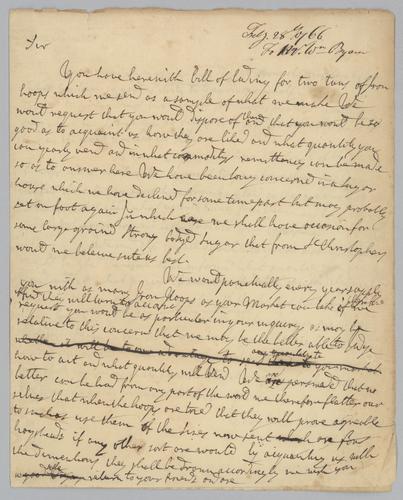 Feb 28th 1766
To Mr. Wm Byam
Sir
You have herewith Bill of Lading for two tuns of Iron
hoops which we send as a sample of what we make We
woud request that you woud dispose of them & that you woud be so
good as to acquaint us how they are liked and what quantity you
can yearly vend and in what commodity remittances can be made
so as to answer here We have been long concerned in a Sugar
house which we have declined for some time past but may probably
set on foot again in which case we shall have occasion for
some large ground Strong bodyd Sugar that from St Christophers
woud we believe suit us best.
We woud punctually every year supply
you with as many Iron Hoops as your Market can take of
And they will turn to account
request you woud be as particular in your inquiry as may be
relative to this concern that we may be the better able to judge
how to act and what quantity will vend We are persuaded that no
better can be had from any part of the world we therefore flatter our
selves that when the hoops are tried that they will prove agreeable
to such as use them of the sizes now sent which are for
hogsheads if any other sort are would by acquainting us with
the dimentions they shall be drawn accordingly we wish you
return to your friends on are